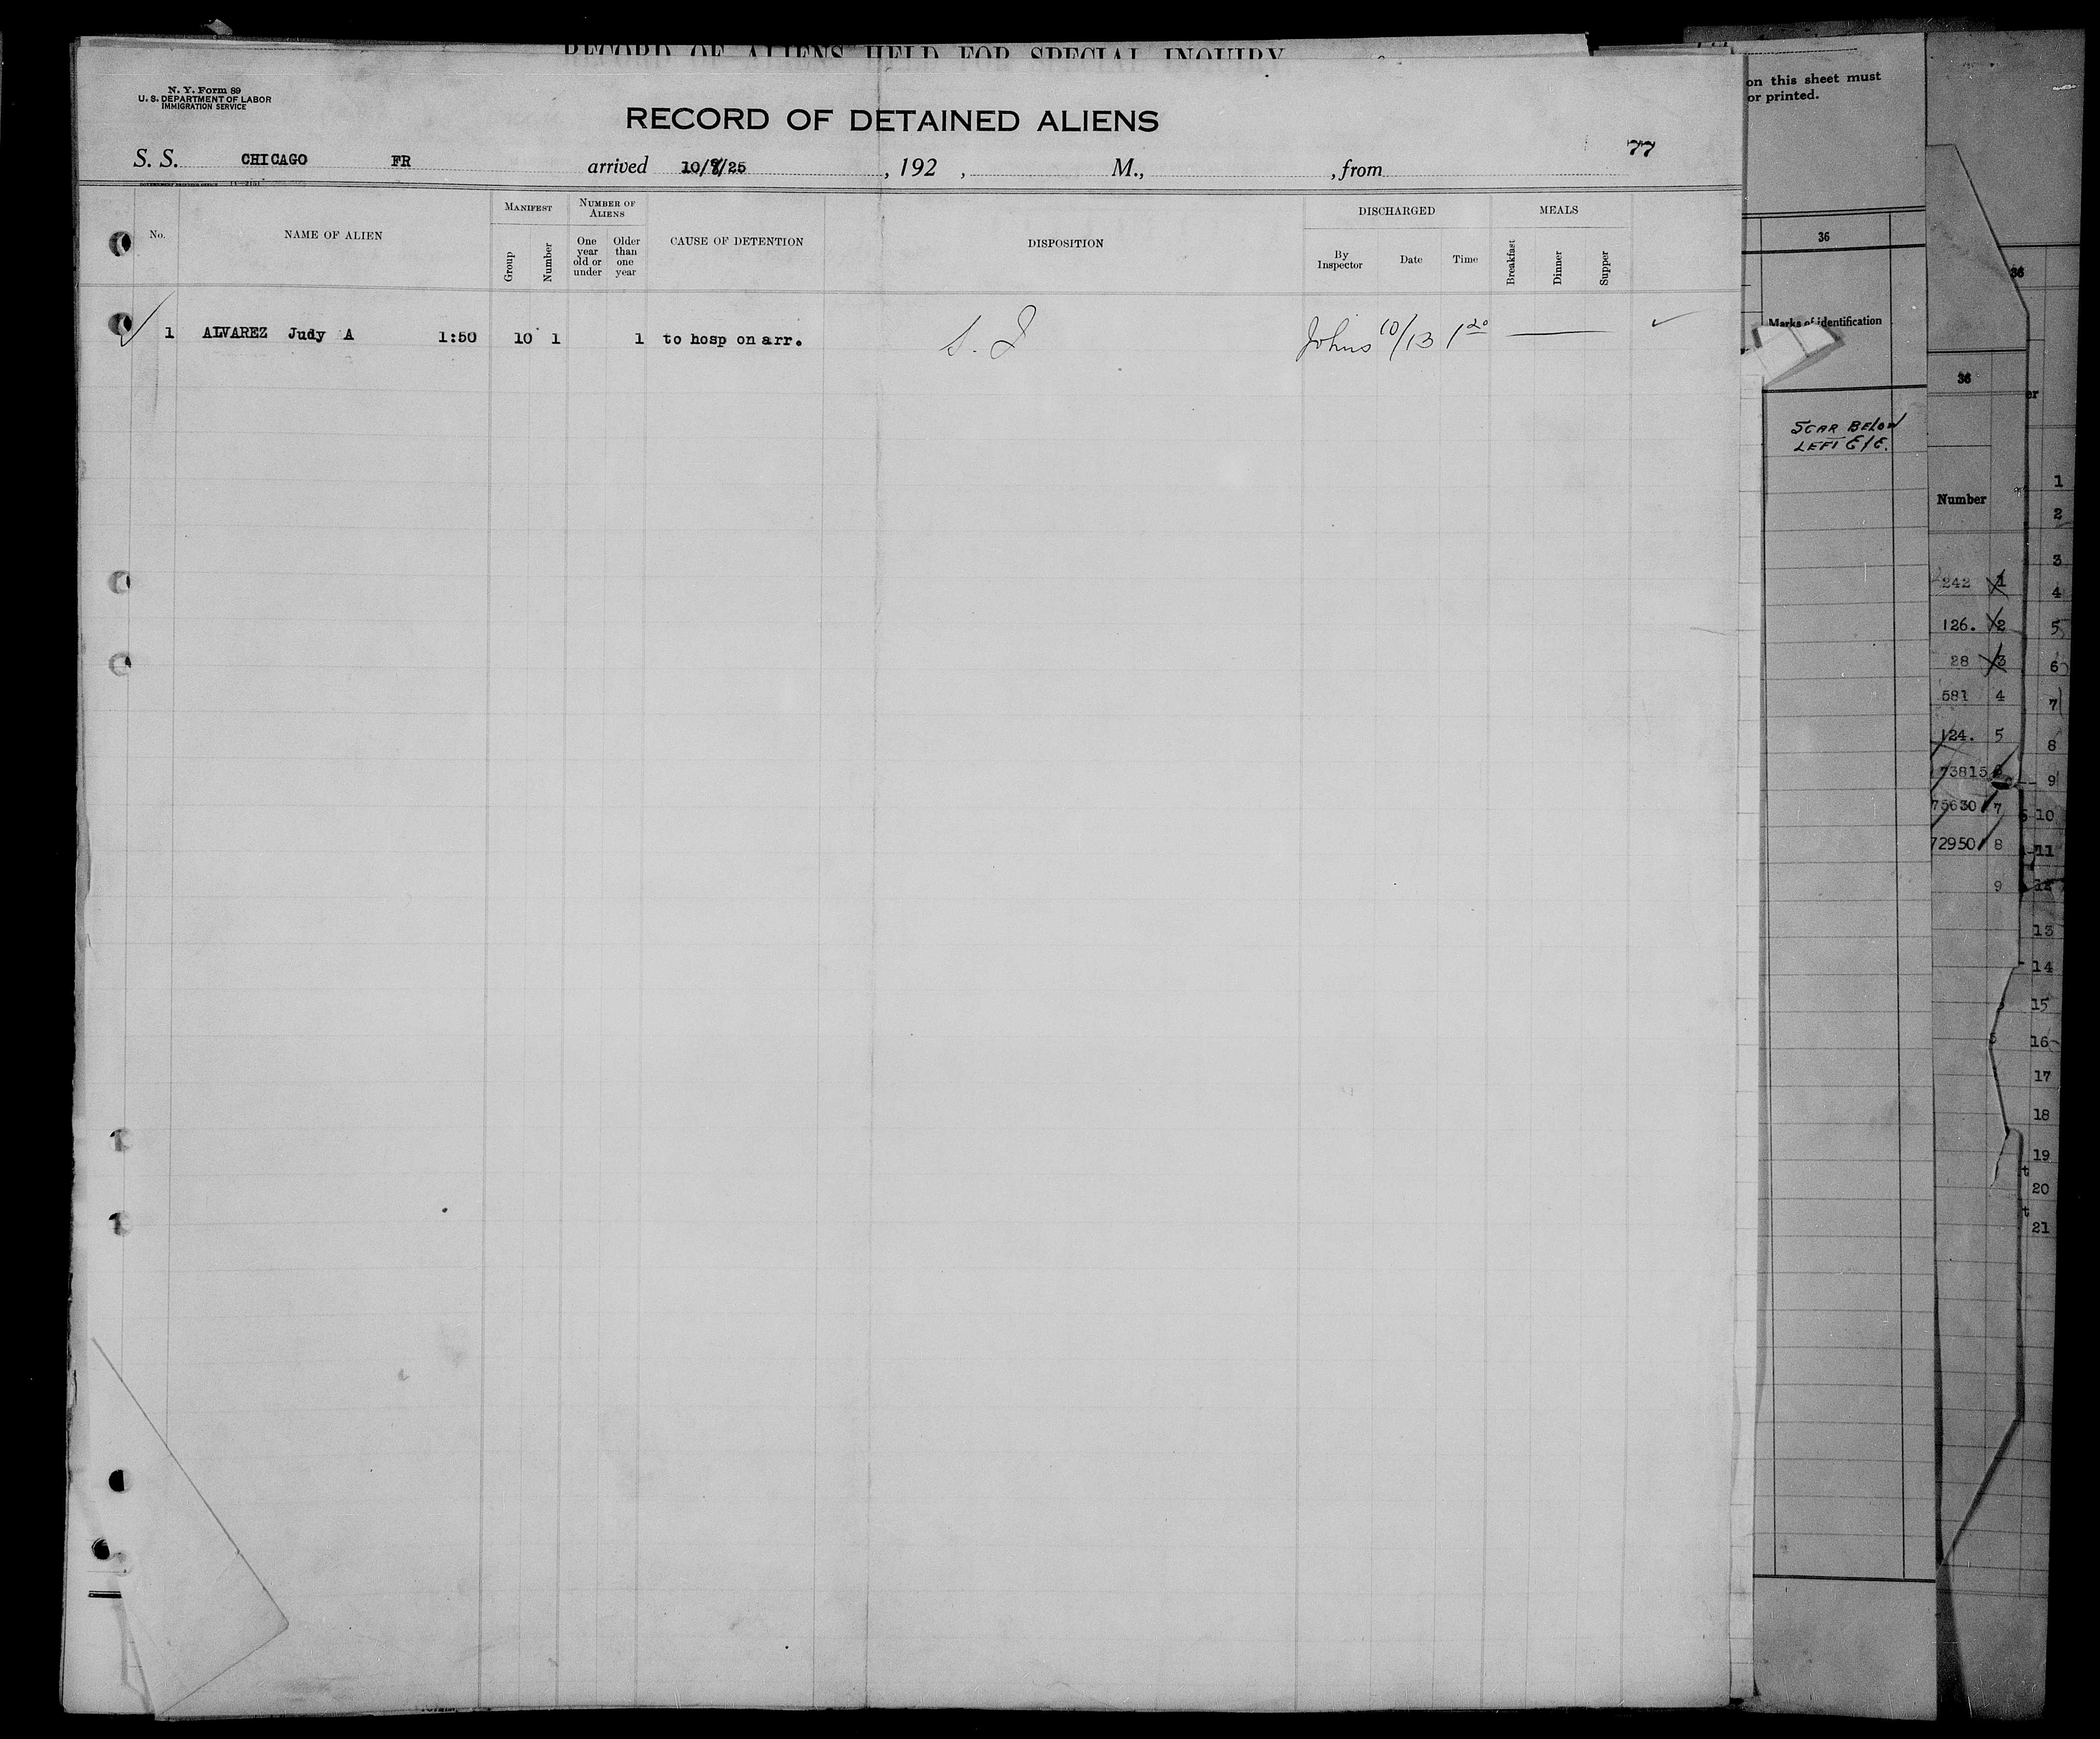 RECORD OF ALIENS HELD FOR SPECIAL INQUIRY
N. Y. Form 89
U. S. DEPARTMENT OF LABOR
IMMIGRATION SERVICE
RECORD OF DETAINED ALIENS
77
S. S. CHICAGO FR arrived 10/8/25, 192 , M., , from
GOVERNMENT PRINTING OFFICE
No. NAME OF ALIEN MANIFEST Group Number NUMBER OF ALIENS One year old or under Older than one year CAUSE OF DETENTION DISPOSITION DISCHARGED By Inspector Date Time MEALS Breakfast Dinner Supper
1 ALVAREZ Judy A 1:50 10 1 1 to hosp on arr. S. I Johns 10/13 1 20
on this sheet must
or printed.
36
Marks of identification
SCAR BELOW
LEFT EYE.
36
36
er
Number
242 1
126. 2
28 3
581 4
124. 5
73815
75630 7
72950 8
9
1
2
3
4
5
6
7
8
9
10
11
12
13
14
15
16
17
18
19
t
20
t
21